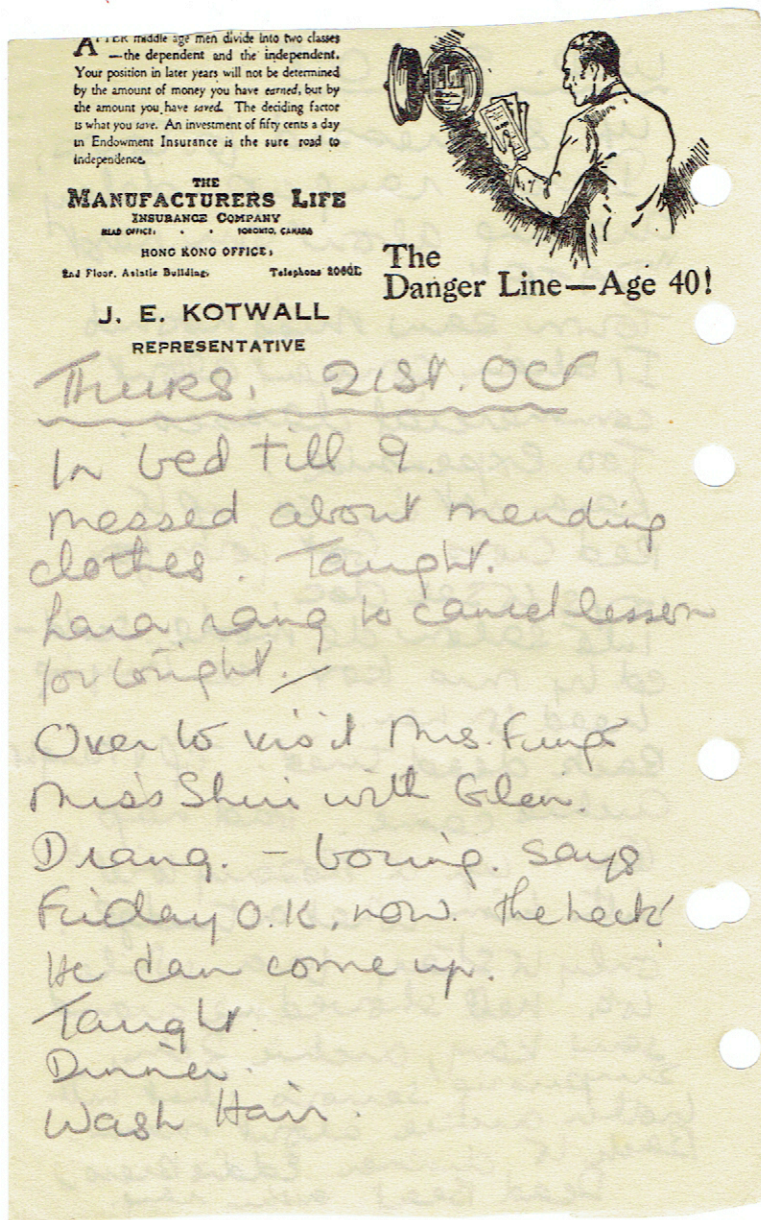 AFTER middle age men divide into two classes
—the dependent and the independent.
Your position in later years will not be determined
by the amount of money you have earned, but by
the amount you have saved. The deciding factor
is what you save. An investment of fifty cents a day
in Endowment Insurance is the sure road to
independence.
THE
MANUFACTURERS LIFE
INSURANCE COMPANY
HEAD OFFICE: TORONTO, CANADA
HONG KONG OFFICE:
2nd Floor, Asiatic Building, Telephone
J. E. KOTWALL
REPRESENTATIVE
The
Danger Line—Age 40!
Thurs. 21st. Oct
In bed till 9.
messed about mending
clothes. Taught.
rang to cancel lesson
for tonight.
Over to visit Mrs. Fung &
Miss Shiu with Glen.
D rang. — boring. Says
Friday O.K. now. The heck!
He can come up.
Taught.
Dinner.
Wash Hair.